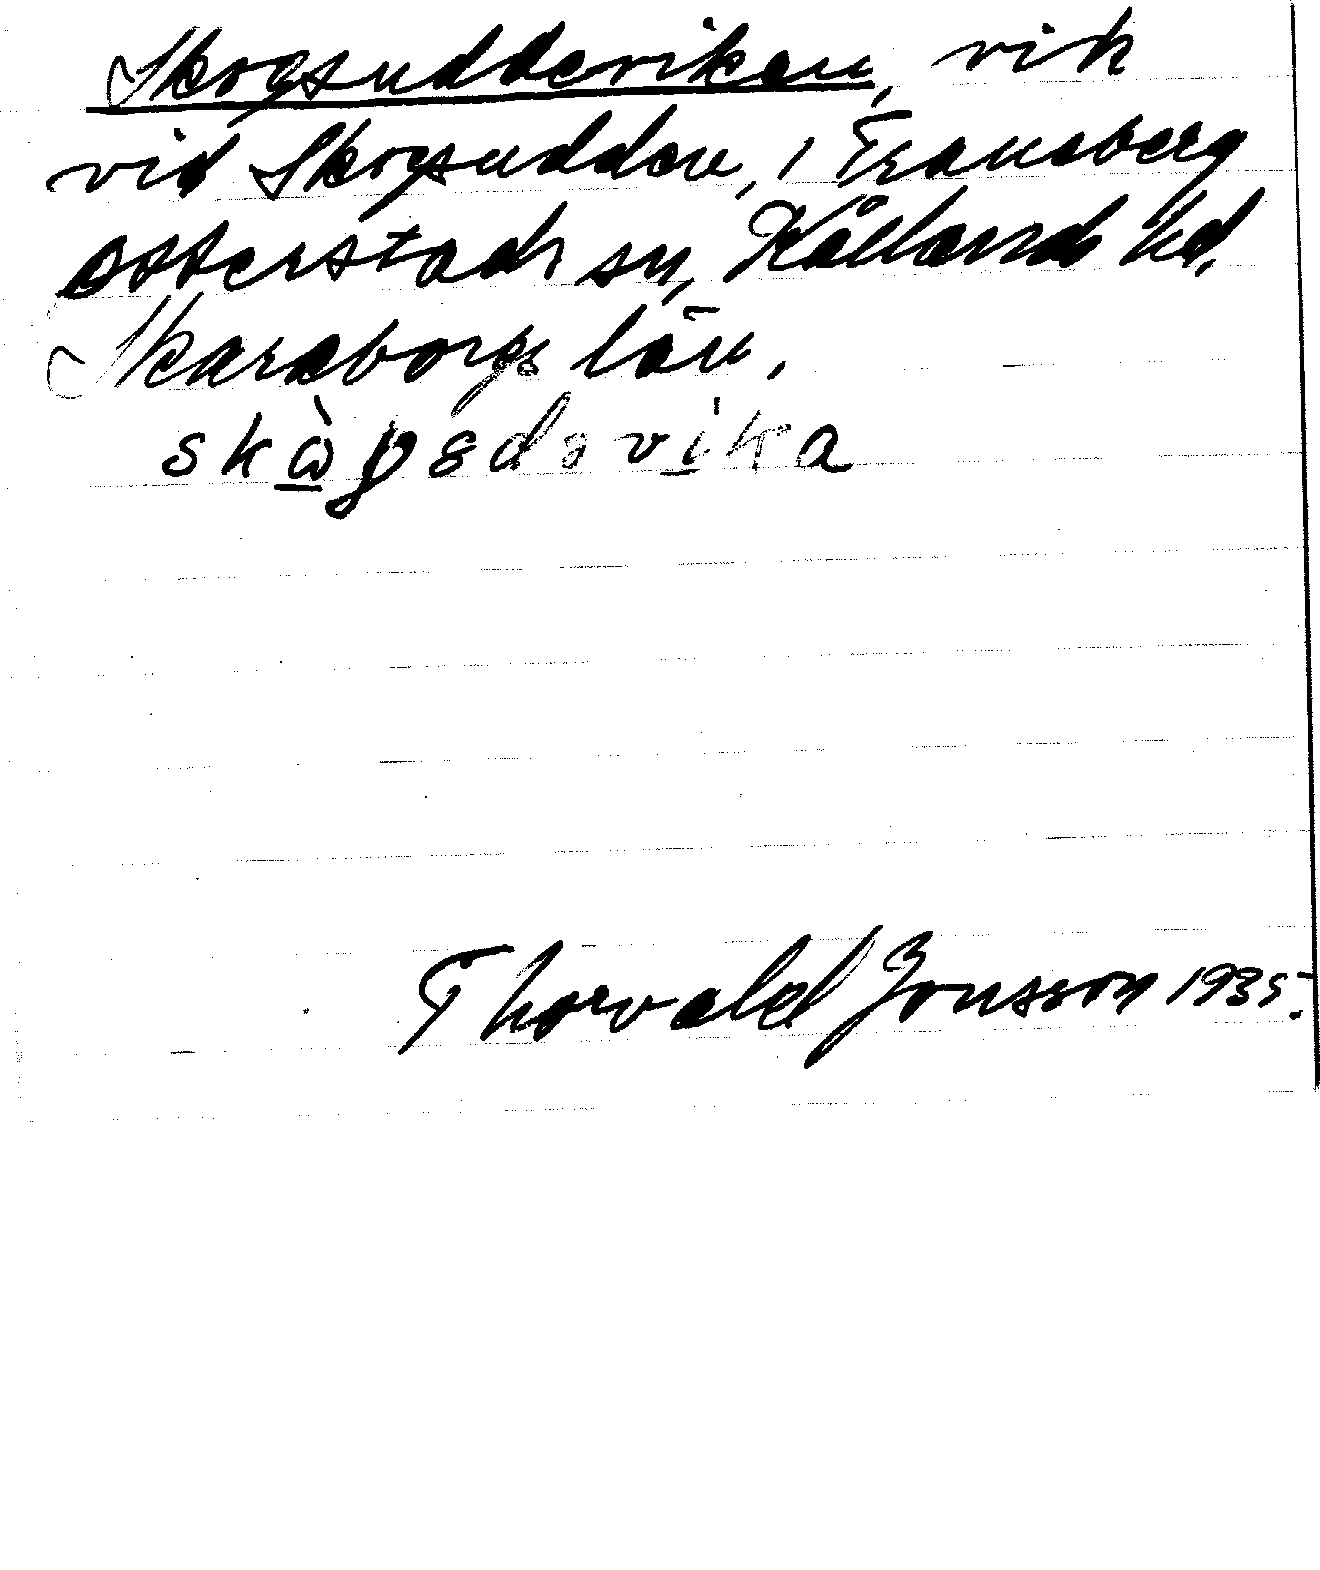 Skogsuddeviken, vik
vid Skogsudden, i Fransberg
Otterstads sn, Kållands hd,
Skaraborgs län.
skò̲gsdəvi̲ka
Thorvald Jonsson 1935.